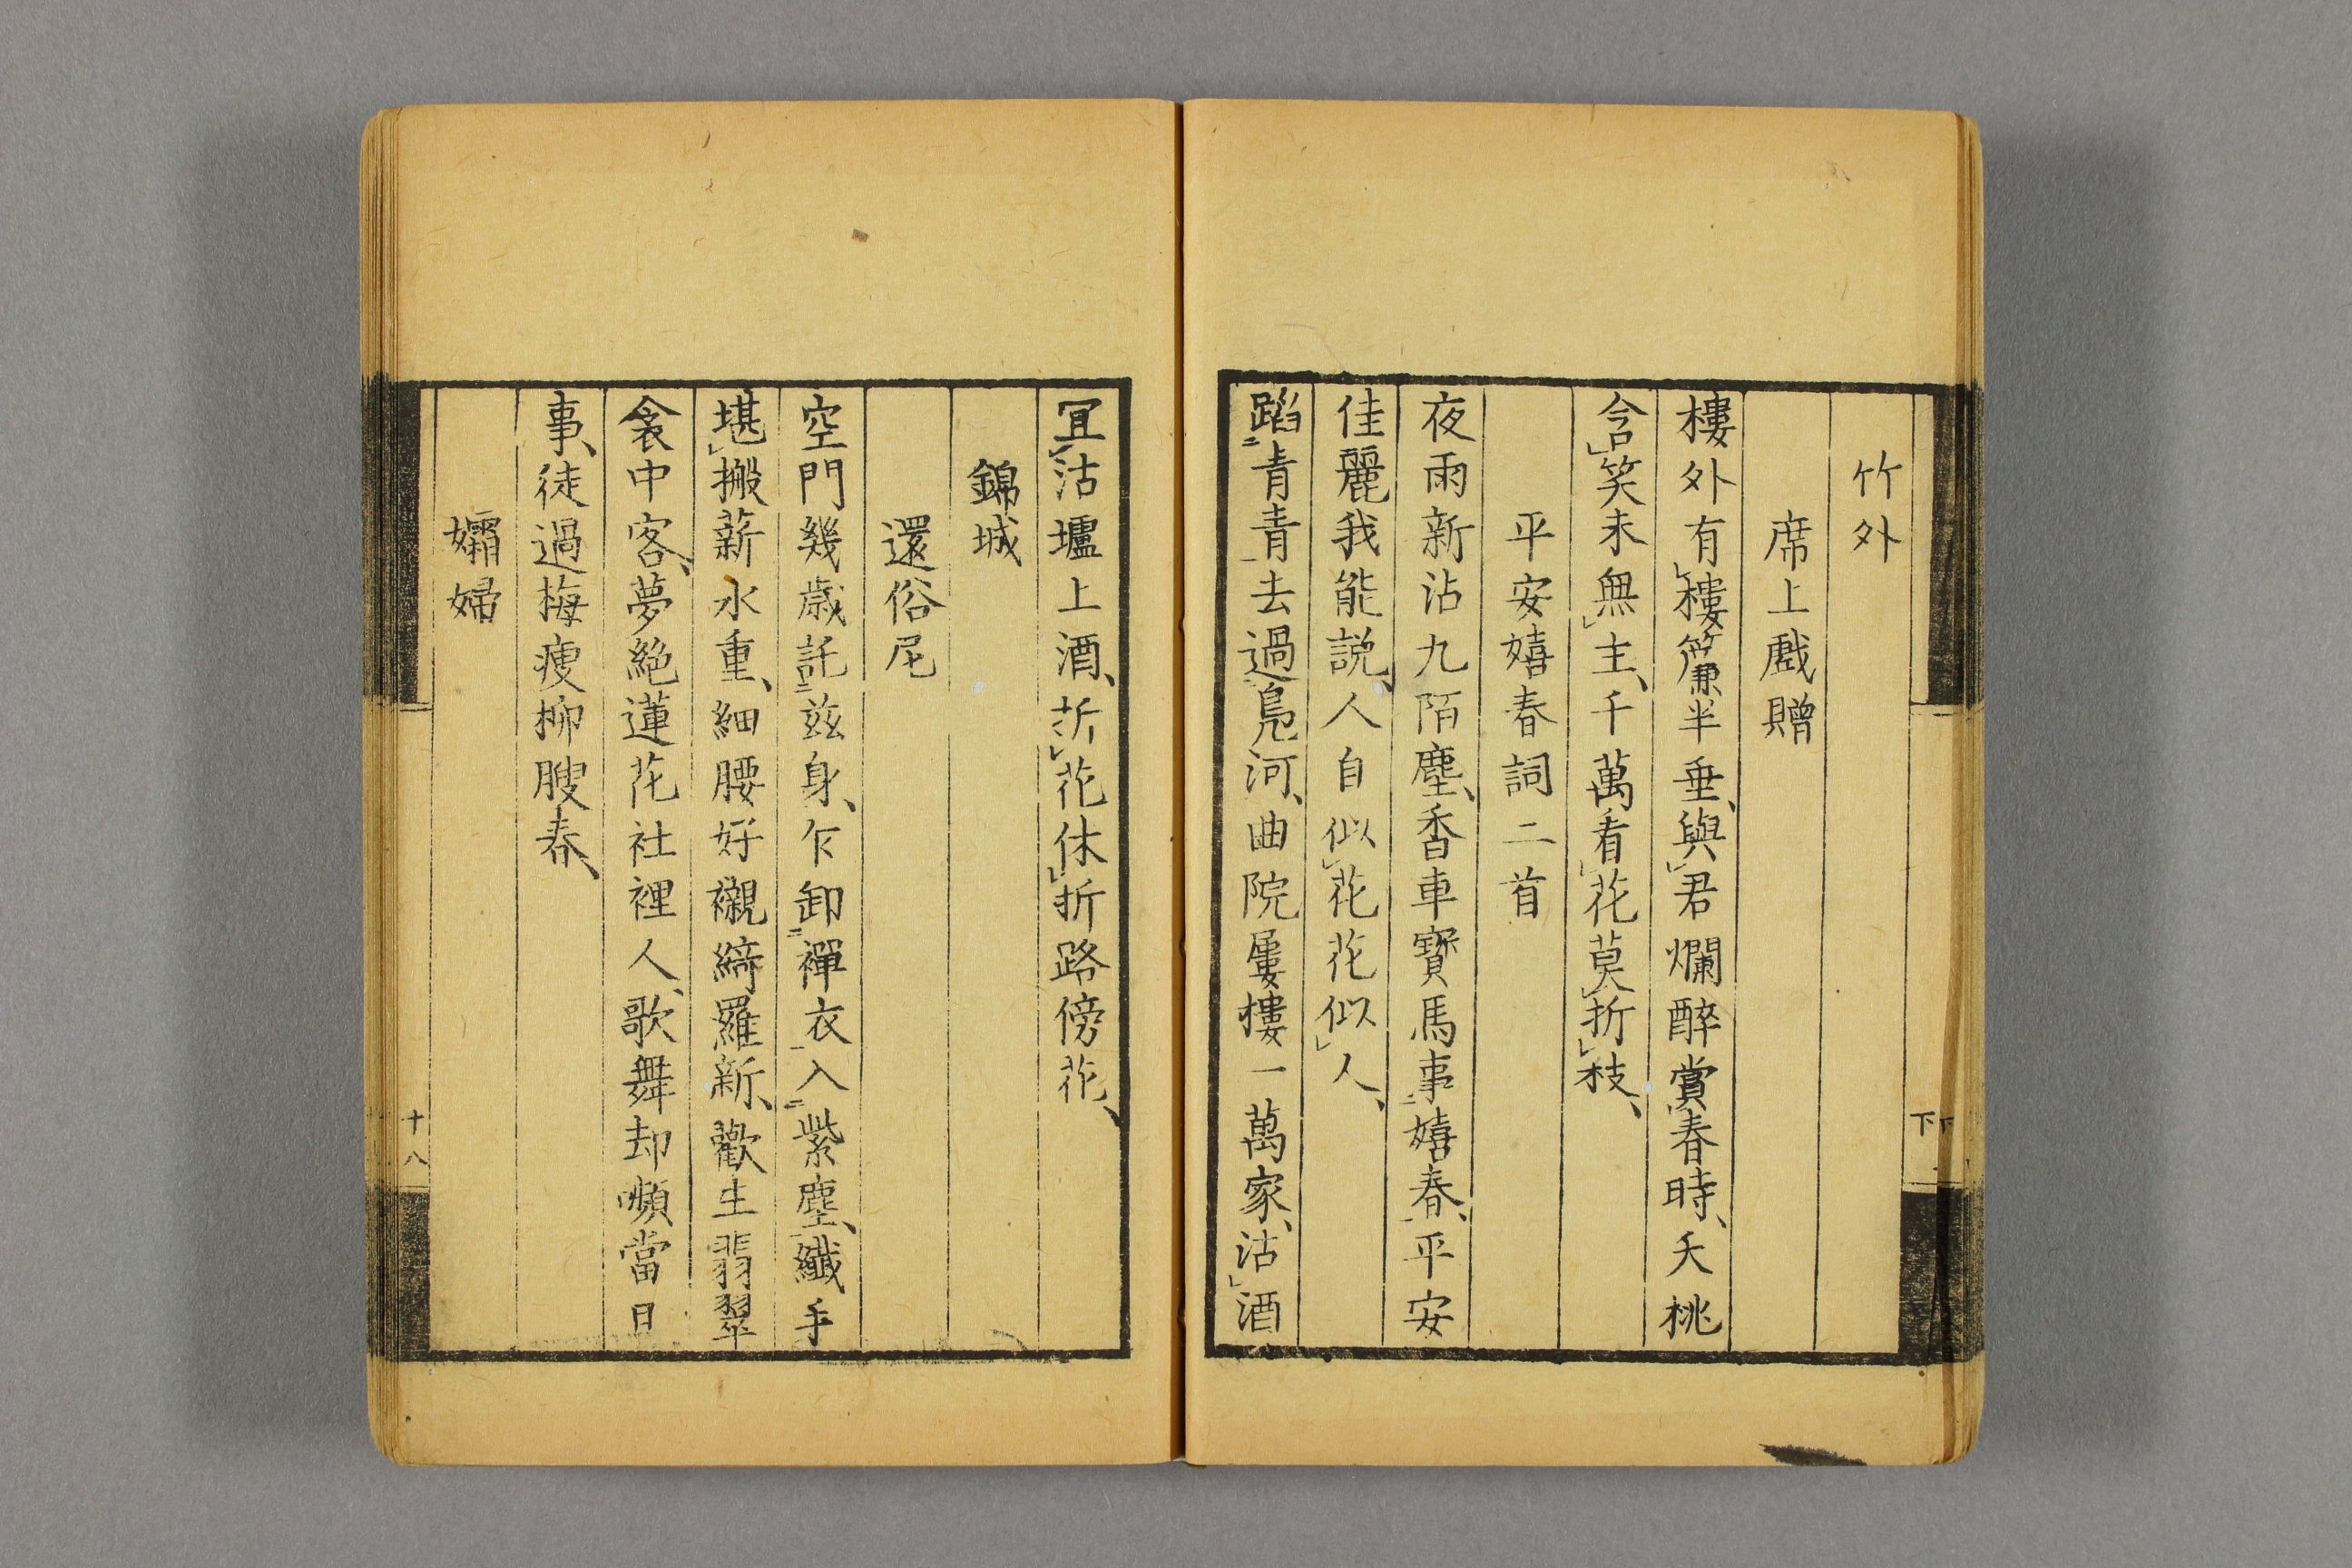 竹外
席上戲贈
樓外有樓簾半垂、與君爛醉賞春時、夭桃
含笑未無主、千萬看花莫折枝、
平安嬉春詞二首
夜雨新沾九陌塵、香車寶馬事嬉春、平安
佳麗我能説、人自似花花似人、
蹈青青去過鳧河、曲院屢樓一萬家、沽酒
冝沽壚上酒、折花休折路傍花、
錦城
還俗尼
空門幾歳託茲身、乍卸禪衣入紫塵、纖手
堪搬薪水重、細腰好襯綺羅新、歡生翡翠
衾中客、夢絕蓮花社裡人、歌舞却嚬當日
事、徒過梅痩柳膄春、
孀婦
下
下
十八